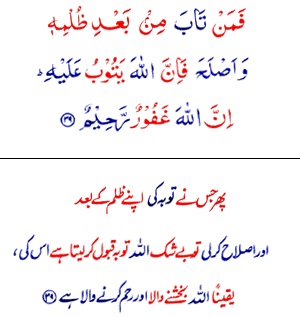 فَمَنْ تَابَ مِنْۢ بَعْدِ ظُلْمِهٖ
وَاَصْلَحَ فَاِنَّ اللّٰهَ يَتُوْبُ عَلَيْهِ ؕ
اِنَّ اللّٰهَ غَفُوْرٌ رَّحِيْمٌ ﴿۳۹﴾
پھر جس نے توبہ کی اپنے ظلم کے بعد
اور اصلاح کرلی تو بے شک اللہ توبہ قبول کرلیتا ہے اس کی،
یقیناً اللہ بخشنے والا اور رحم کرنے والا ہے ﴿۳۹﴾